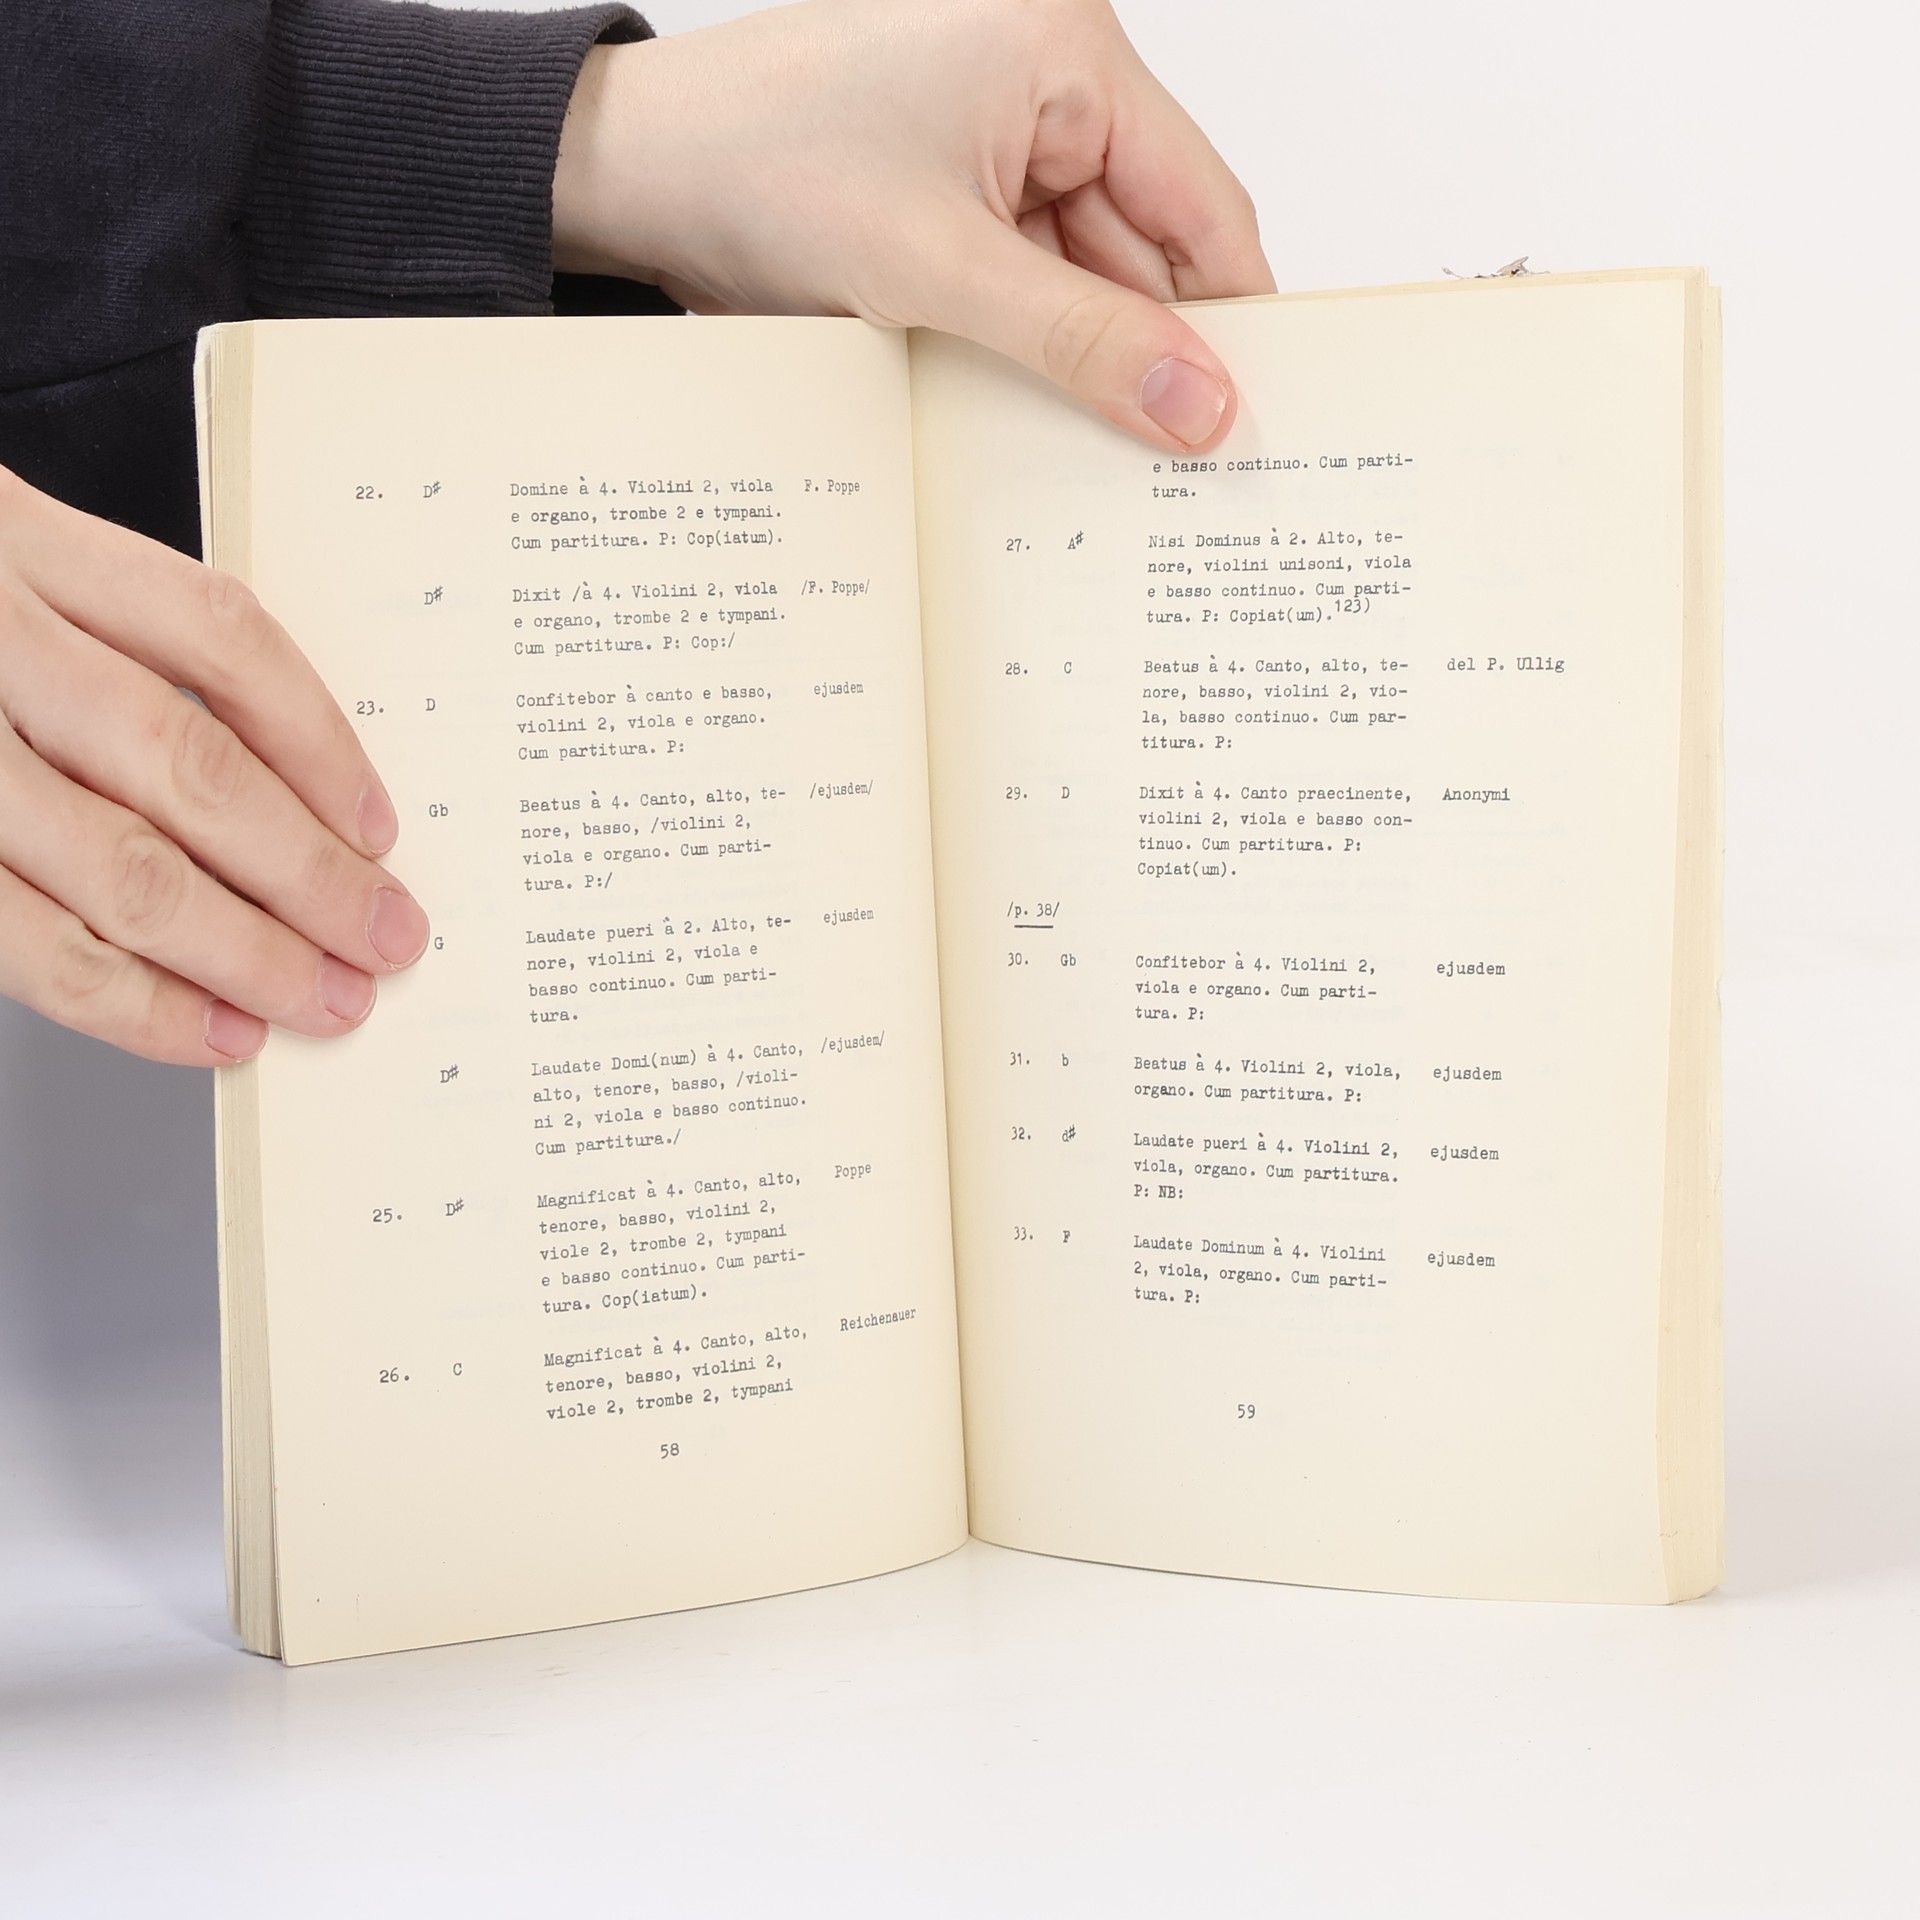 22. D# Domine à 4. Violini 2, viola F. Poppe
e organo, trombe 2 e tympani.
Cum partitura. P: Cop(iatum).
D# Dixit /à 4. Violini 2, viola /F. Poppe/
e organo, trombe 2 e tympani.
Cum partitura. P: Cop:/
23. D Confitebor à canto e basso, ejusdem
violini 2, viola e organo.
Cum partitura. P:
Gb Beatus à 4. Canto, alto, te- /ejusdem/
nore, basso, /violini 2,
viola e organo. Cum parti-
tura. P:/
G Laudate pueri à 2. Alto, te- ejusdem
nore, violini 2, viola e
basso continuo. Cum parti-
tura.
D# Laudate Domi(num) à 4. Canto, /ejusdem/
alto, tenore, basso, /violi-
ni 2, viola e basso continuo.
Cum partitura./
25. D# Magnificat à 4. Canto, alto, Poppe
tenore, basso, violini 2,
viole 2, trombe 2, tympani
e basso continuo. Cum parti-
tura. Cop(iatum).
26. C Magnificat à 4. Canto, alto, Reichenauer
tenore, basso, violini 2,
viole 2, trombe 2, tympani
58
e basso continuo. Cum parti-
tura.
27. A# Nisi Dominus à 2. Alto, te-
nore, violini unisoni, viola
e basso continuo. Cum parti-
tura. P: Copiat(um).123)
28. C Beatus à 4. Canto, alto, te- del P. Ullig
nore, basso, violini 2, vio-
la, basso continuo. Cum par-
titura. P:
29. D Dixit à 4. Canto praecinente, Anonymi
violini 2, viola e basso con-
tinuo. Cum partitura. P:
Copiat(um).
/p. 38/
30. Gb Confitebor à 4. Violini 2, ejusdem
viola e organo. Cum parti-
tura. P:
31. b Beatus à 4. Violini 2, viola, ejusdem
organo. Cum partitura. P:
32. d# Laudate pueri à 4. Violini 2, ejusdem
viola, organo. Cum partitura.
P: NB:
33. F Laudate Dominum à 4. Violini ejusdem
2, viola, organo. Cum parti-
tura. P:
59